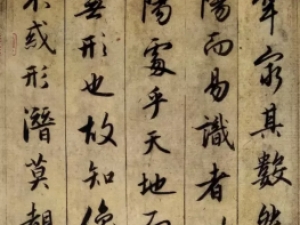 罕窮其數然
陽而易識者
陽處乎天地而
無形也故知像
不惑形潛莫覩